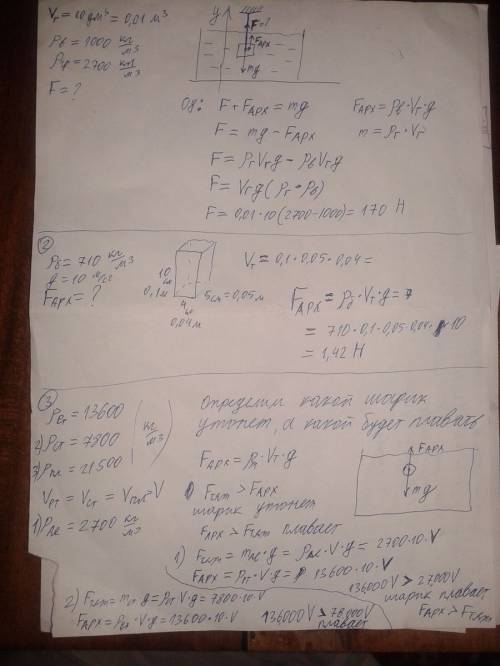 Vт = 10 дм³ = 0,01 м³
ρв = 1000 кг/м³
ρгр = 2700 кг/м³
F = ?
y
F = ?
FАРХ
mg
Oy: F + FАРХ = mg
FАРХ = ρв · Vт · g
F = mg - FАРХ
m = ρт · Vт
F = ρтVтg - ρвVтg
F = Vтg (ρт - ρв)
F = 0,01 · 10 (2700 - 1000) = 170 Н
②
ρб = 710 кг/м³
g = 10 м/с²
FАРХ = ?
10 см
0,1 м
5 см = 0,05 м
4 см
0,04 м
Vт = 0,1 · 0,05 · 0,04 =
FАРХ = ρ · Vт · g =
= 710 · 0,1 · 0,05 · 0,04 · 10
= 1,42 Н
③
ρрт = 13600
2) ρст = 7800
3) ρпл = 21500
кг/м³
Vрт = Vст = Vпл = V
1) ρал = 2700 кг/м³
Определим какой шарик
утонет, а какой будет плавать
FАРХ = ρ · Vт · g
FАРХ
mg
Fтяж > FАРХ
шарик утонет
FАРХ > Fтяж плавает
1) Fтяж = mал · g = ρал · V · g = 2700 · 10 · V
FАРХ = ρрт · V · g = 13600 · 10 · V
136000V > 27000V
шарик плавает
FАРХ > Fтяж
2) Fтяж = mст · g = ρст · V · g = 7800 · 10 · V
FАРХ = ρрт · V · g = 13600 · 10 · V
136000V > 78000V
плавает